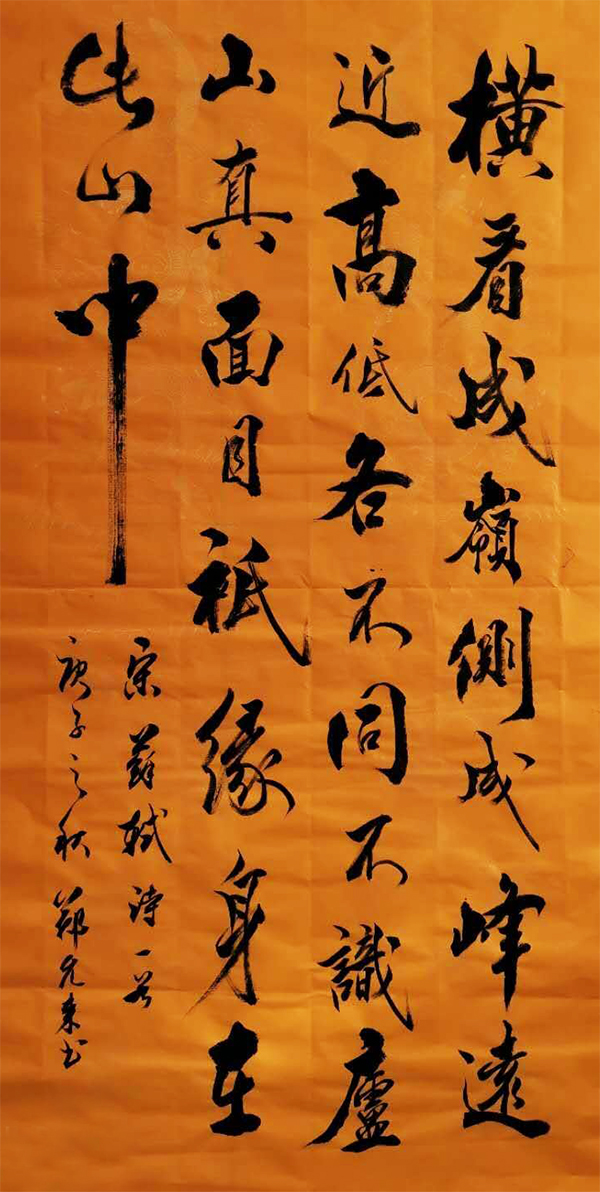 横看成嶺側成峰遠
近高低各不同不識廬
山真面目衹緣身在
此山中
宋蘇軾詩一首
庚子之秋鄭允來书